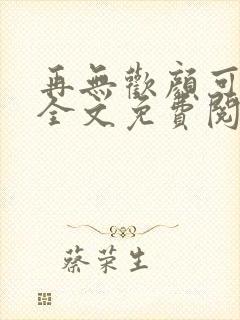 再無歡顏可
全文免費閱
蔡荣生